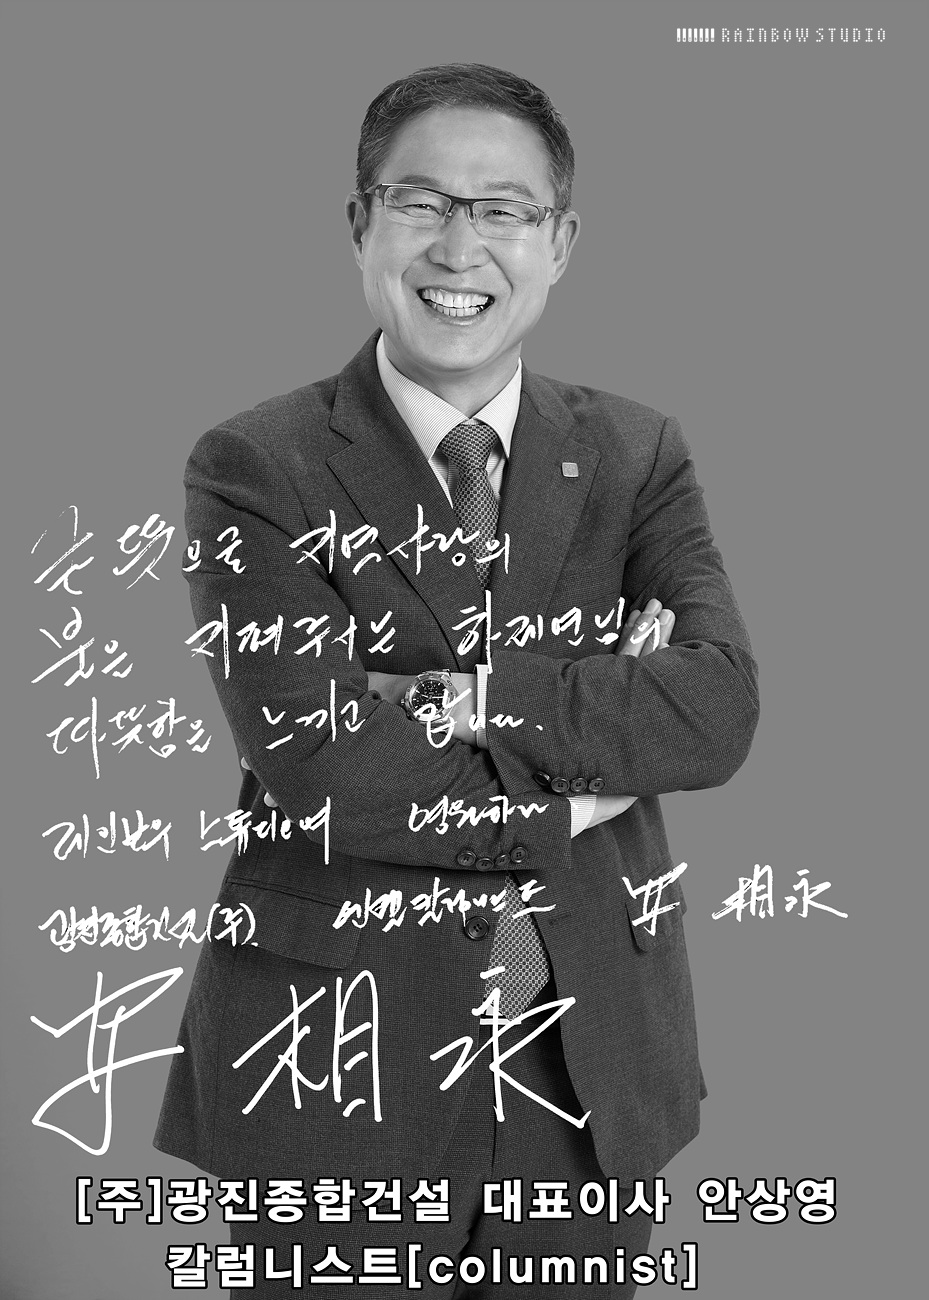 RAINBOW STUDIO
큰 뜻으로 지역사랑의
붓은 지켜주시는 하제연님의
따뜻함을 느끼고 갑니다.
레인보우 스튜디오여 영원하라
광진종합건설(주). 安相永
安相永
[주]광진종합건설 대표이사 안상영
칼럼니스트[columnist]